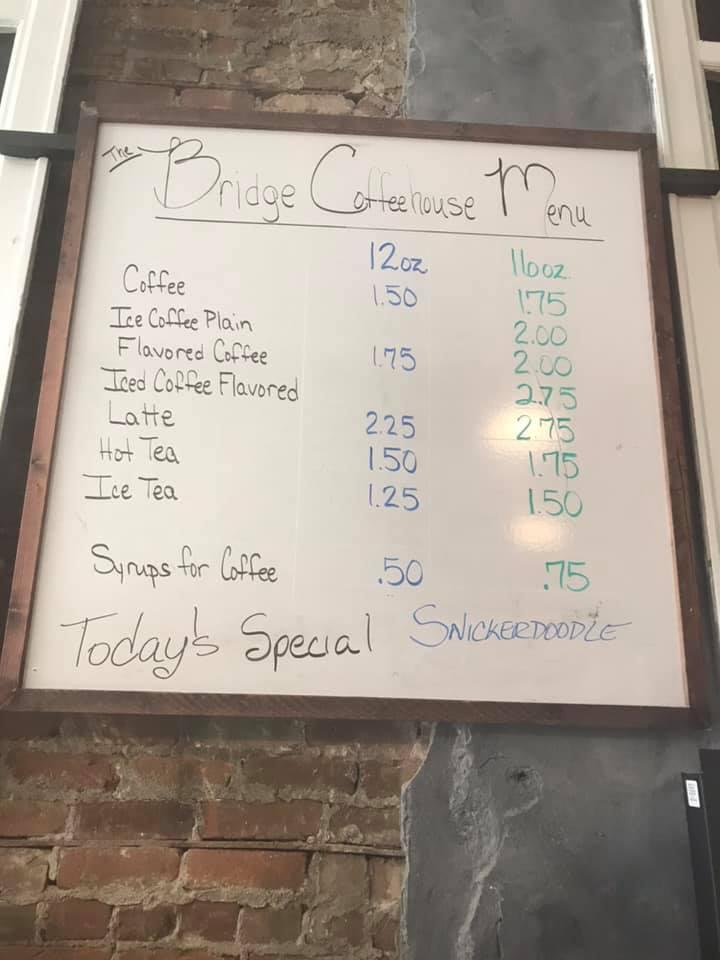 The Bridge Coffeehouse Menu
12oz 16oz
Coffee 1.50 1.75
Ice Coffee Plain 2.00
Flavored Coffee 1.75 2.00
Iced Coffee Flavored 2.75
Latte 2.25 2.75
Hot Tea 1.50 1.75
Ice Tea 1.25 1.50
Syrups for Coffee .50 .75
Today's Special SNICKERDOODLE